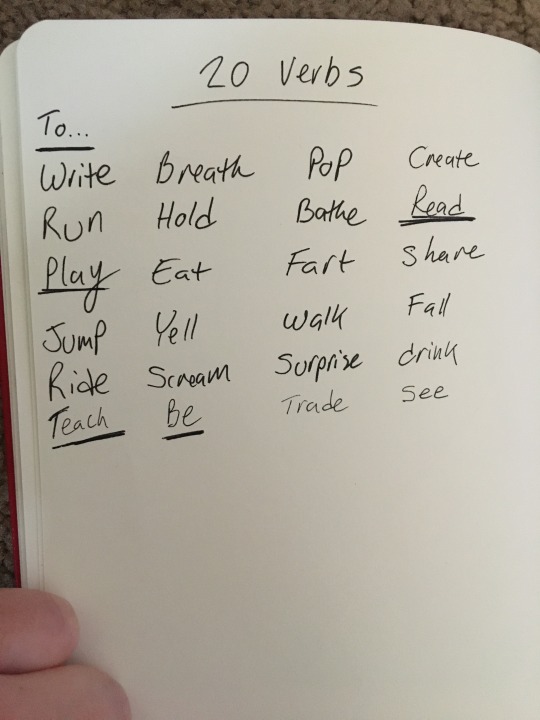 20 Verbs
To...
Write Breath Pop Create
Run Hold Bathe Read
Play Eat Fart Share
Jump Yell Walk Fall
Ride Scream Surprise drink
Teach Be Trade See